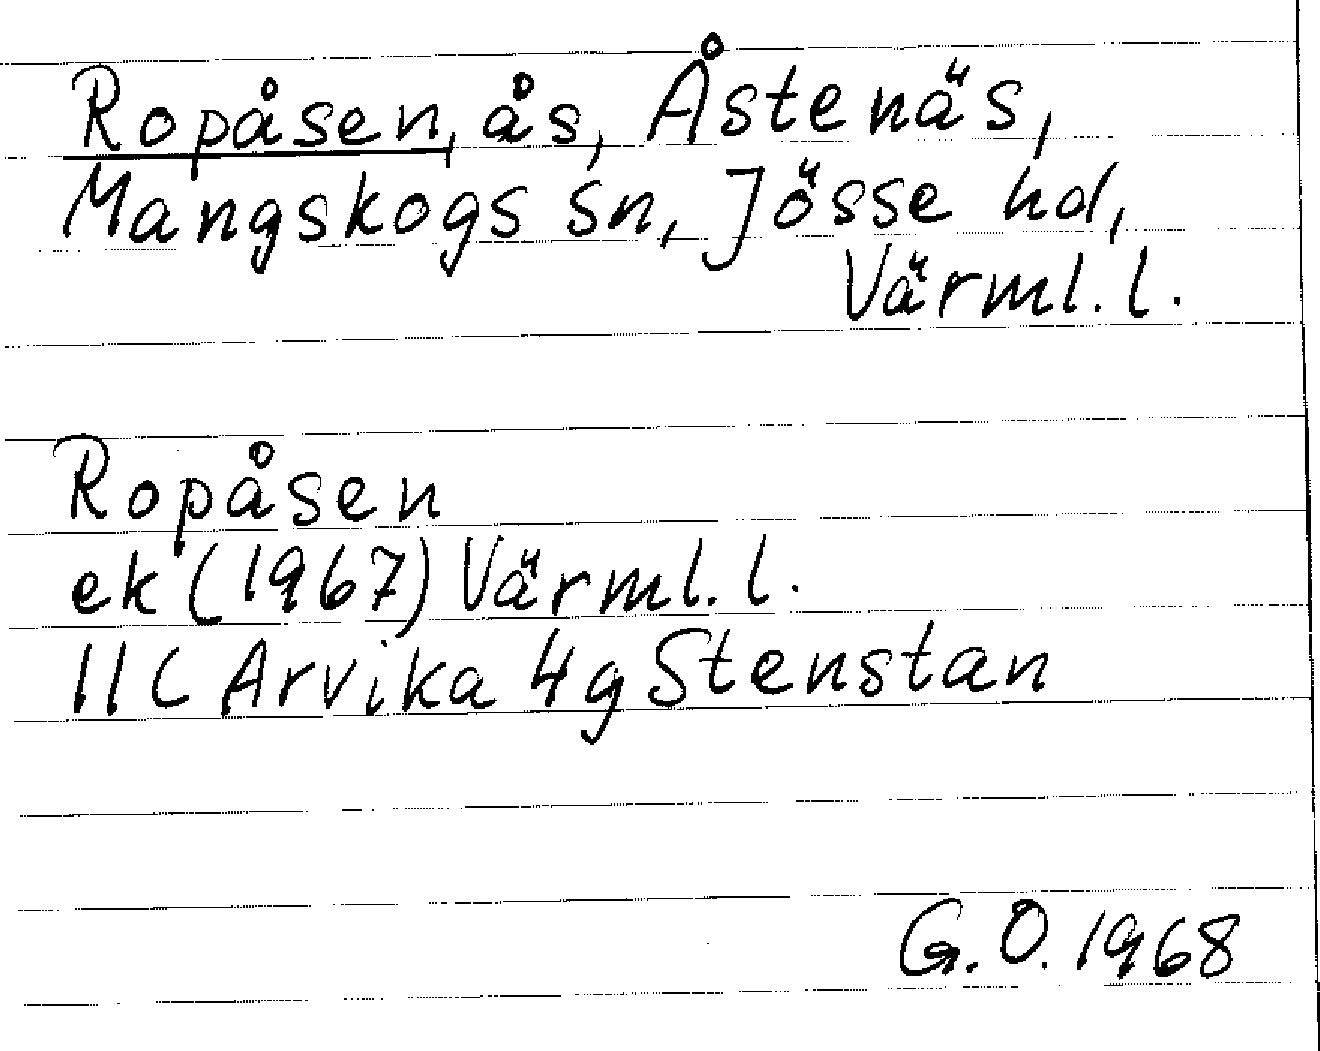 Ropåsen, ås, Åstenäs,
Mangskogs sn, Jösse hd,
Värml. l.
Ropåsen
ek (1967) Värml. l.
11C Arvika 4g Stenstan
G.O. 1968